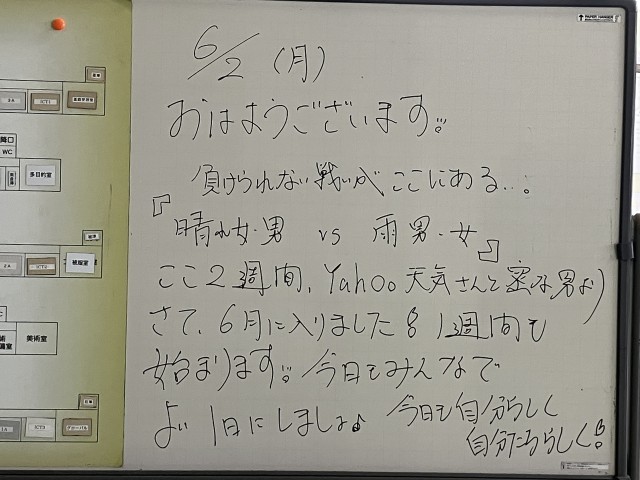 6/2 (月)
おはようございます!!
負けられない戦いがここにある...。
『晴れ女・男 vs 雨男・女』
ここ2週間、Yahoo天気さんと密な男より
さて、6月に入りました! 1週間も
始まります!! 今日もみんなで
よい1日にしましょ♪ 今日も自分らしく
自分たちらしく!
ICT1
WC
多目的室
ICT2
被服室
美術室
ICT3
グローバル